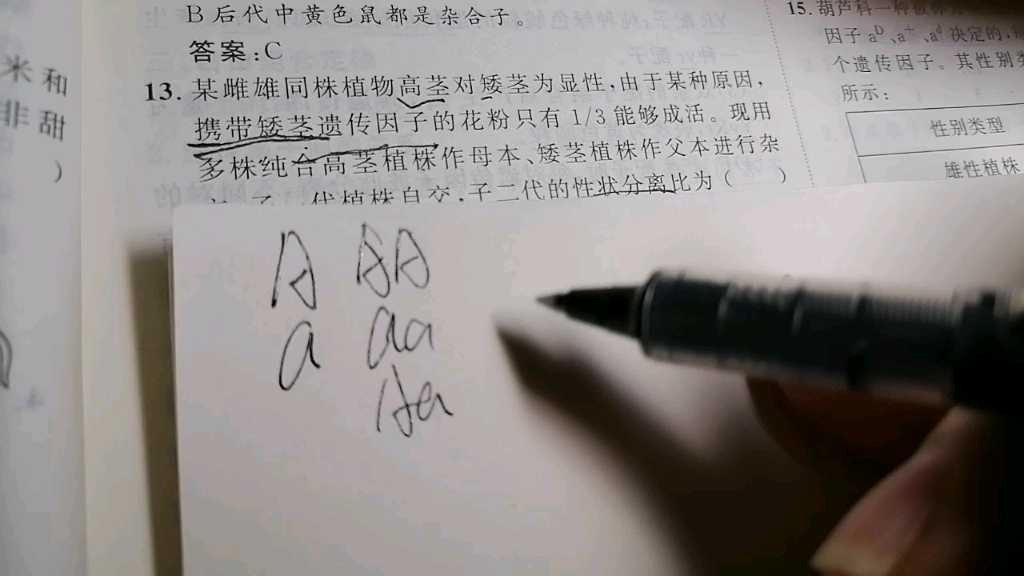 B后代中黄色鼠都是杂合子。
答案:C
13.某雌雄同株植物高茎对矮茎为显性,由于某种原因,
携带矮茎遗传因子的花粉只有1/3能够成活。现用
多株纯合高茎植株作母本、矮茎植株作父本进行杂
子一代植株自交,子二代的性状分离比为( )
米和
非甜
)
15.葫芦科一种被称为
因子aᴰ、a⁺、aᵈ决定的,
个遗传因子。其性别类
所示:
性别类型
雄性植株
A AA
a aa
Aa